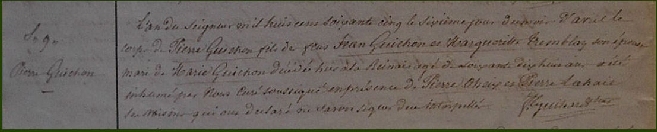 S. 9.
Pierre Guichon
L'an du Seigneur mil huit cent soixante cinq le sixième jour du mois d'avril le
corps de Pierre Guichon fils de feus Jean Guichon et Marguerite Tremblay son épouse
mari de Marie Guichon décédé hier à la agé de soixante dix huit ans a été
inhumé par Nous Curé soussigné en présence de Pierre et Pierre
témoins qui ont déclaré ne savoir signer de ce interpellé